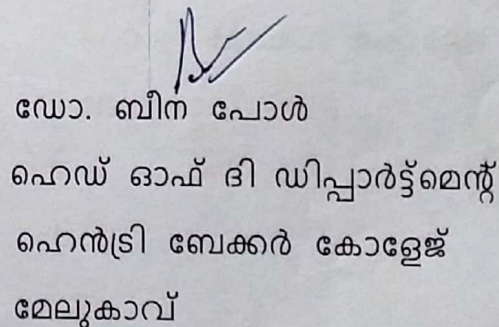 ഡോ. ബീന പോൾ
ഹെഡ് ഓഫ് ദി ഡിപ്പാർട്ട്മെന്റ്
ഹെൻട്രി ബേക്കർ കോളേജ്
മേലുകാവ്